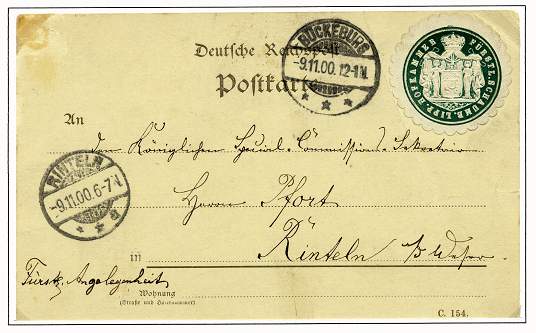 BÜCKEBURG
-9.11.00.12-1N.
FÜRSTL. SCHAUMB. LIPP. HOFKAMMER
Deutsche Reichspost
Postkarte
An
den Königlichen Special-Commissions-Sekretair
RINTELN
-9.11.00.6-7N.
Herrn Pfort
in Rinteln a/Weser.
Fürstl. Angelegenheit
Wohnung
(Straße und Hausnummer)
C. 154.